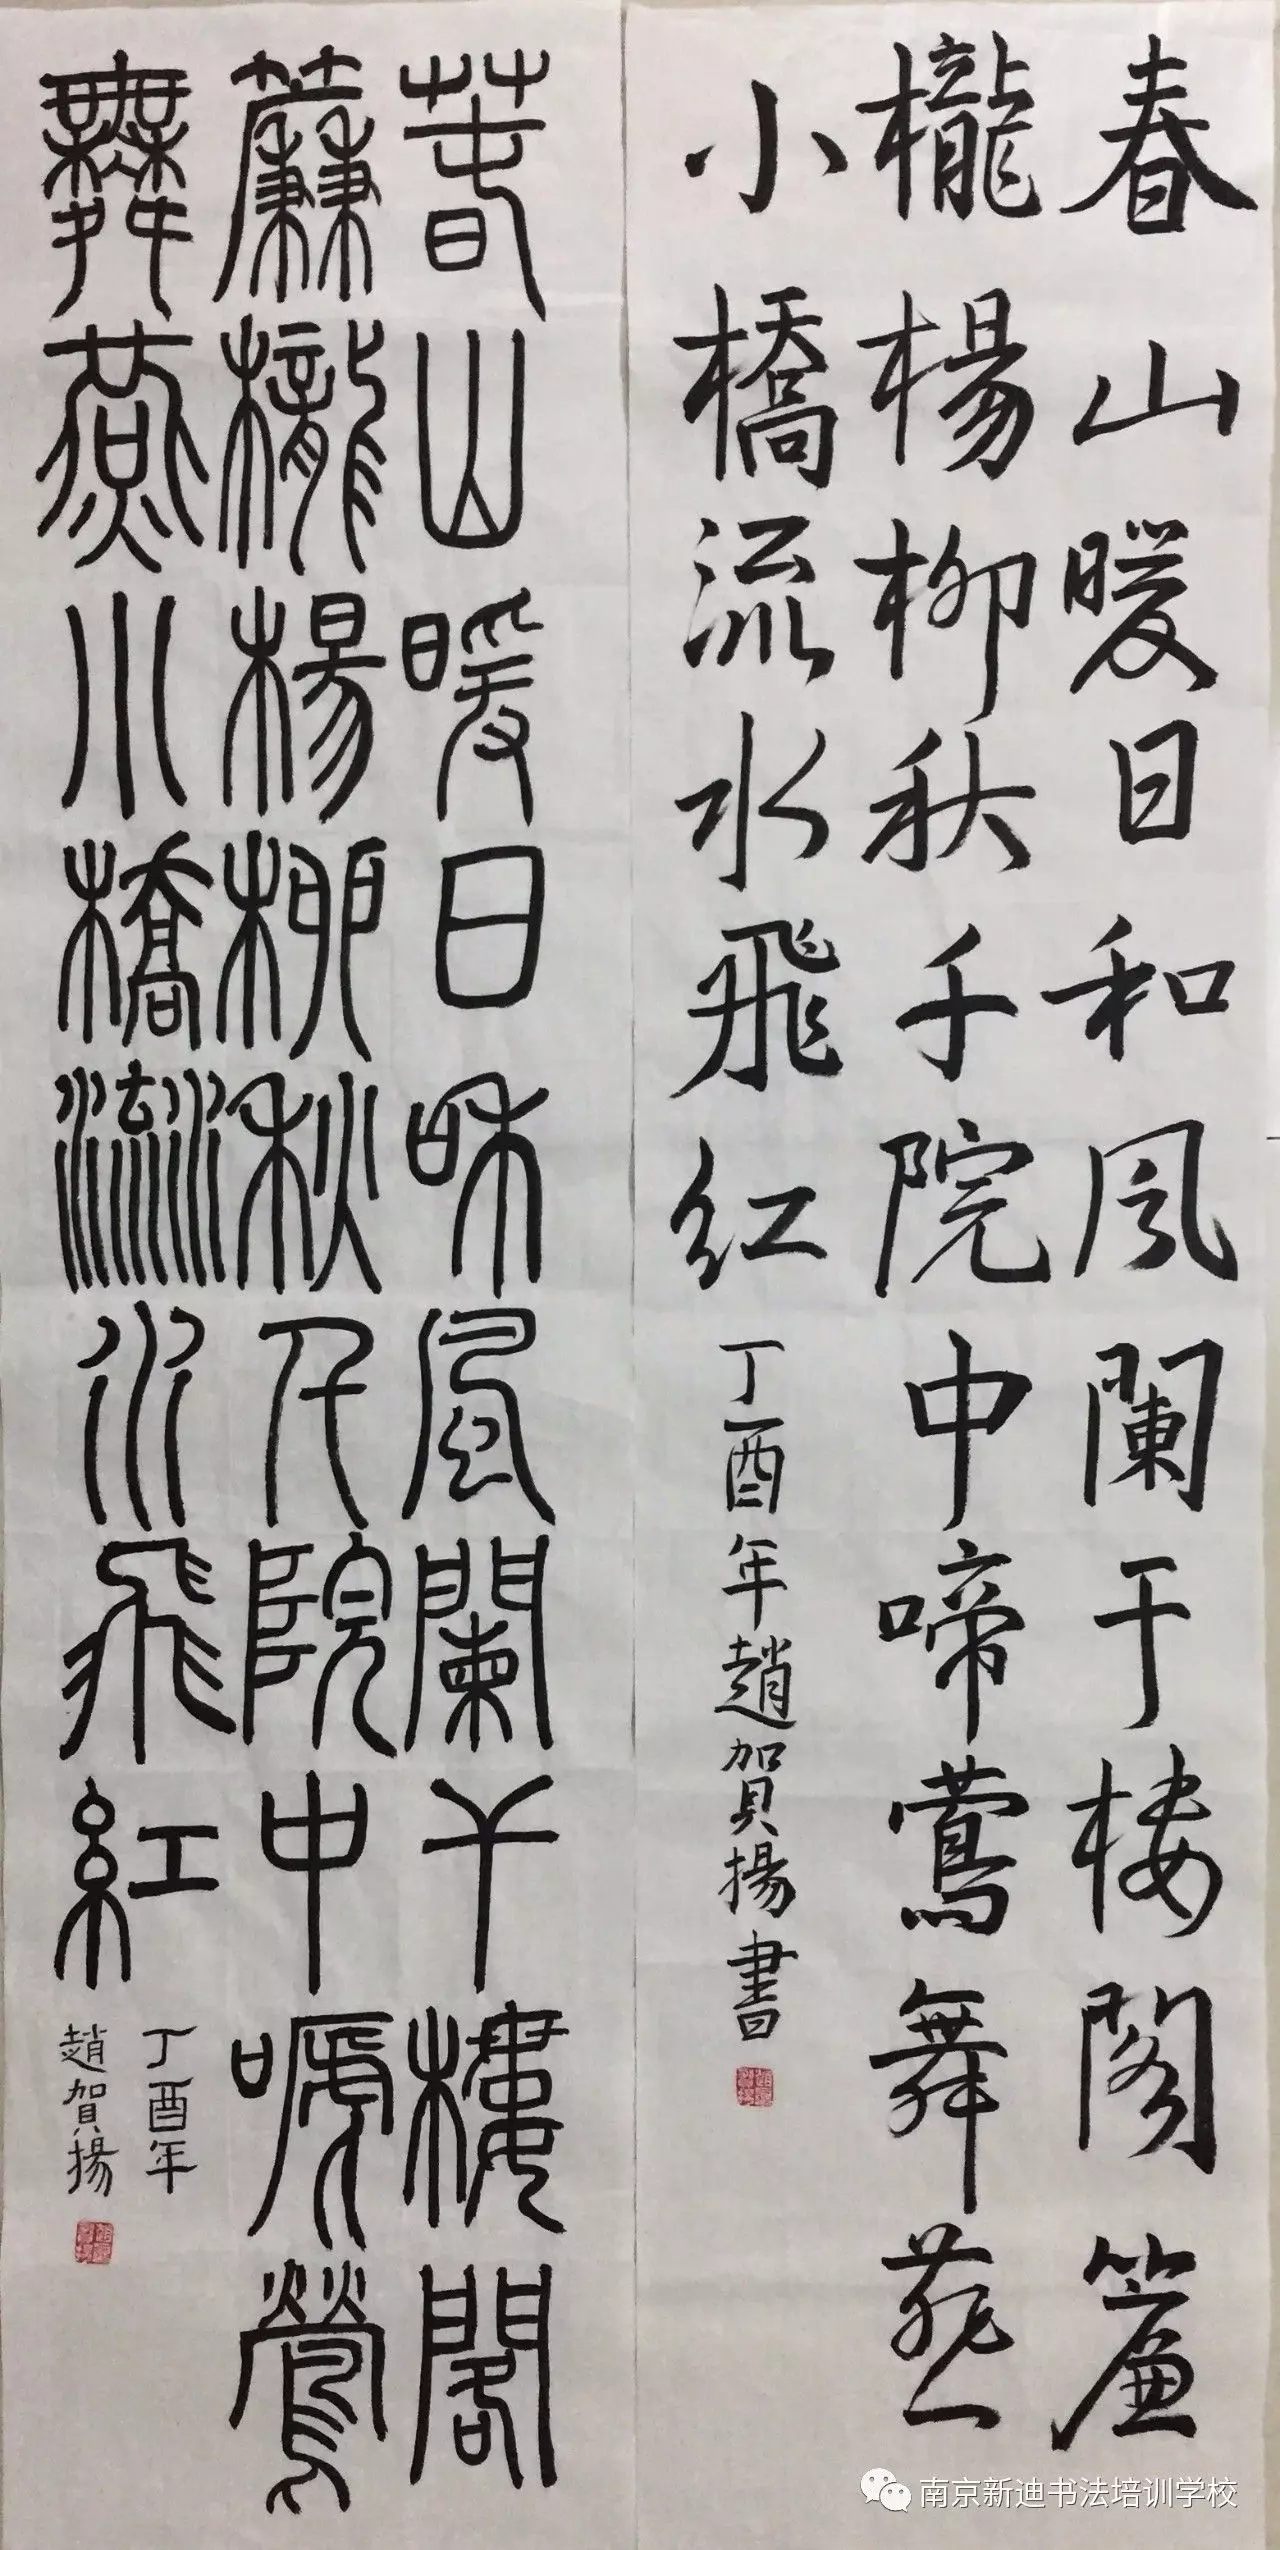 春山暖日和风阑干楼阁簾
櫳楊柳秋千院中啼鶯舞燕
小橋流水飛红
丁酉年趙賀揚書
春山暖日和風闌干樓閣
簾櫳楊柳秋千院中嗁鶯
舞燕小橋流水飛紅
丁酉年
趙賀揚
南京新迪书法培训学校